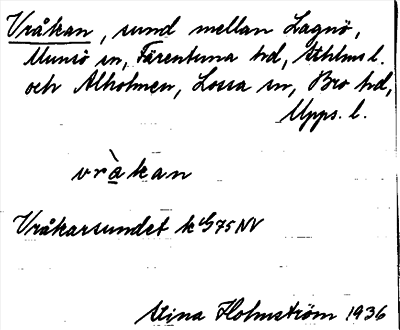 Vråkan, sund mellan Lagnö,
Munsö sn, Färentuna hd, Sthlms l.
och Alholmen, Lossa sn, Bro hd,
Upps. l.
vrå̀kan
Vråkarsundet k G75 NV
Stina Holmström 1936